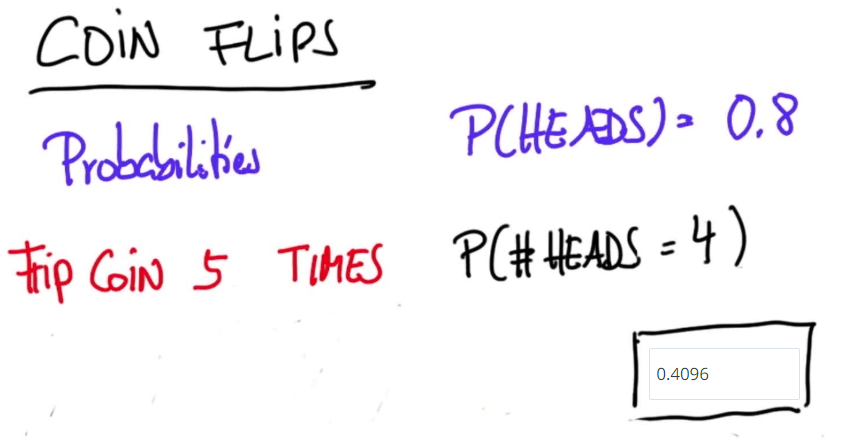 COIN FLIPS
Probabilities
P(HEADS) = 0.8
Flip COIN 5 TIMES
P(# HEADS = 4)
0.4096